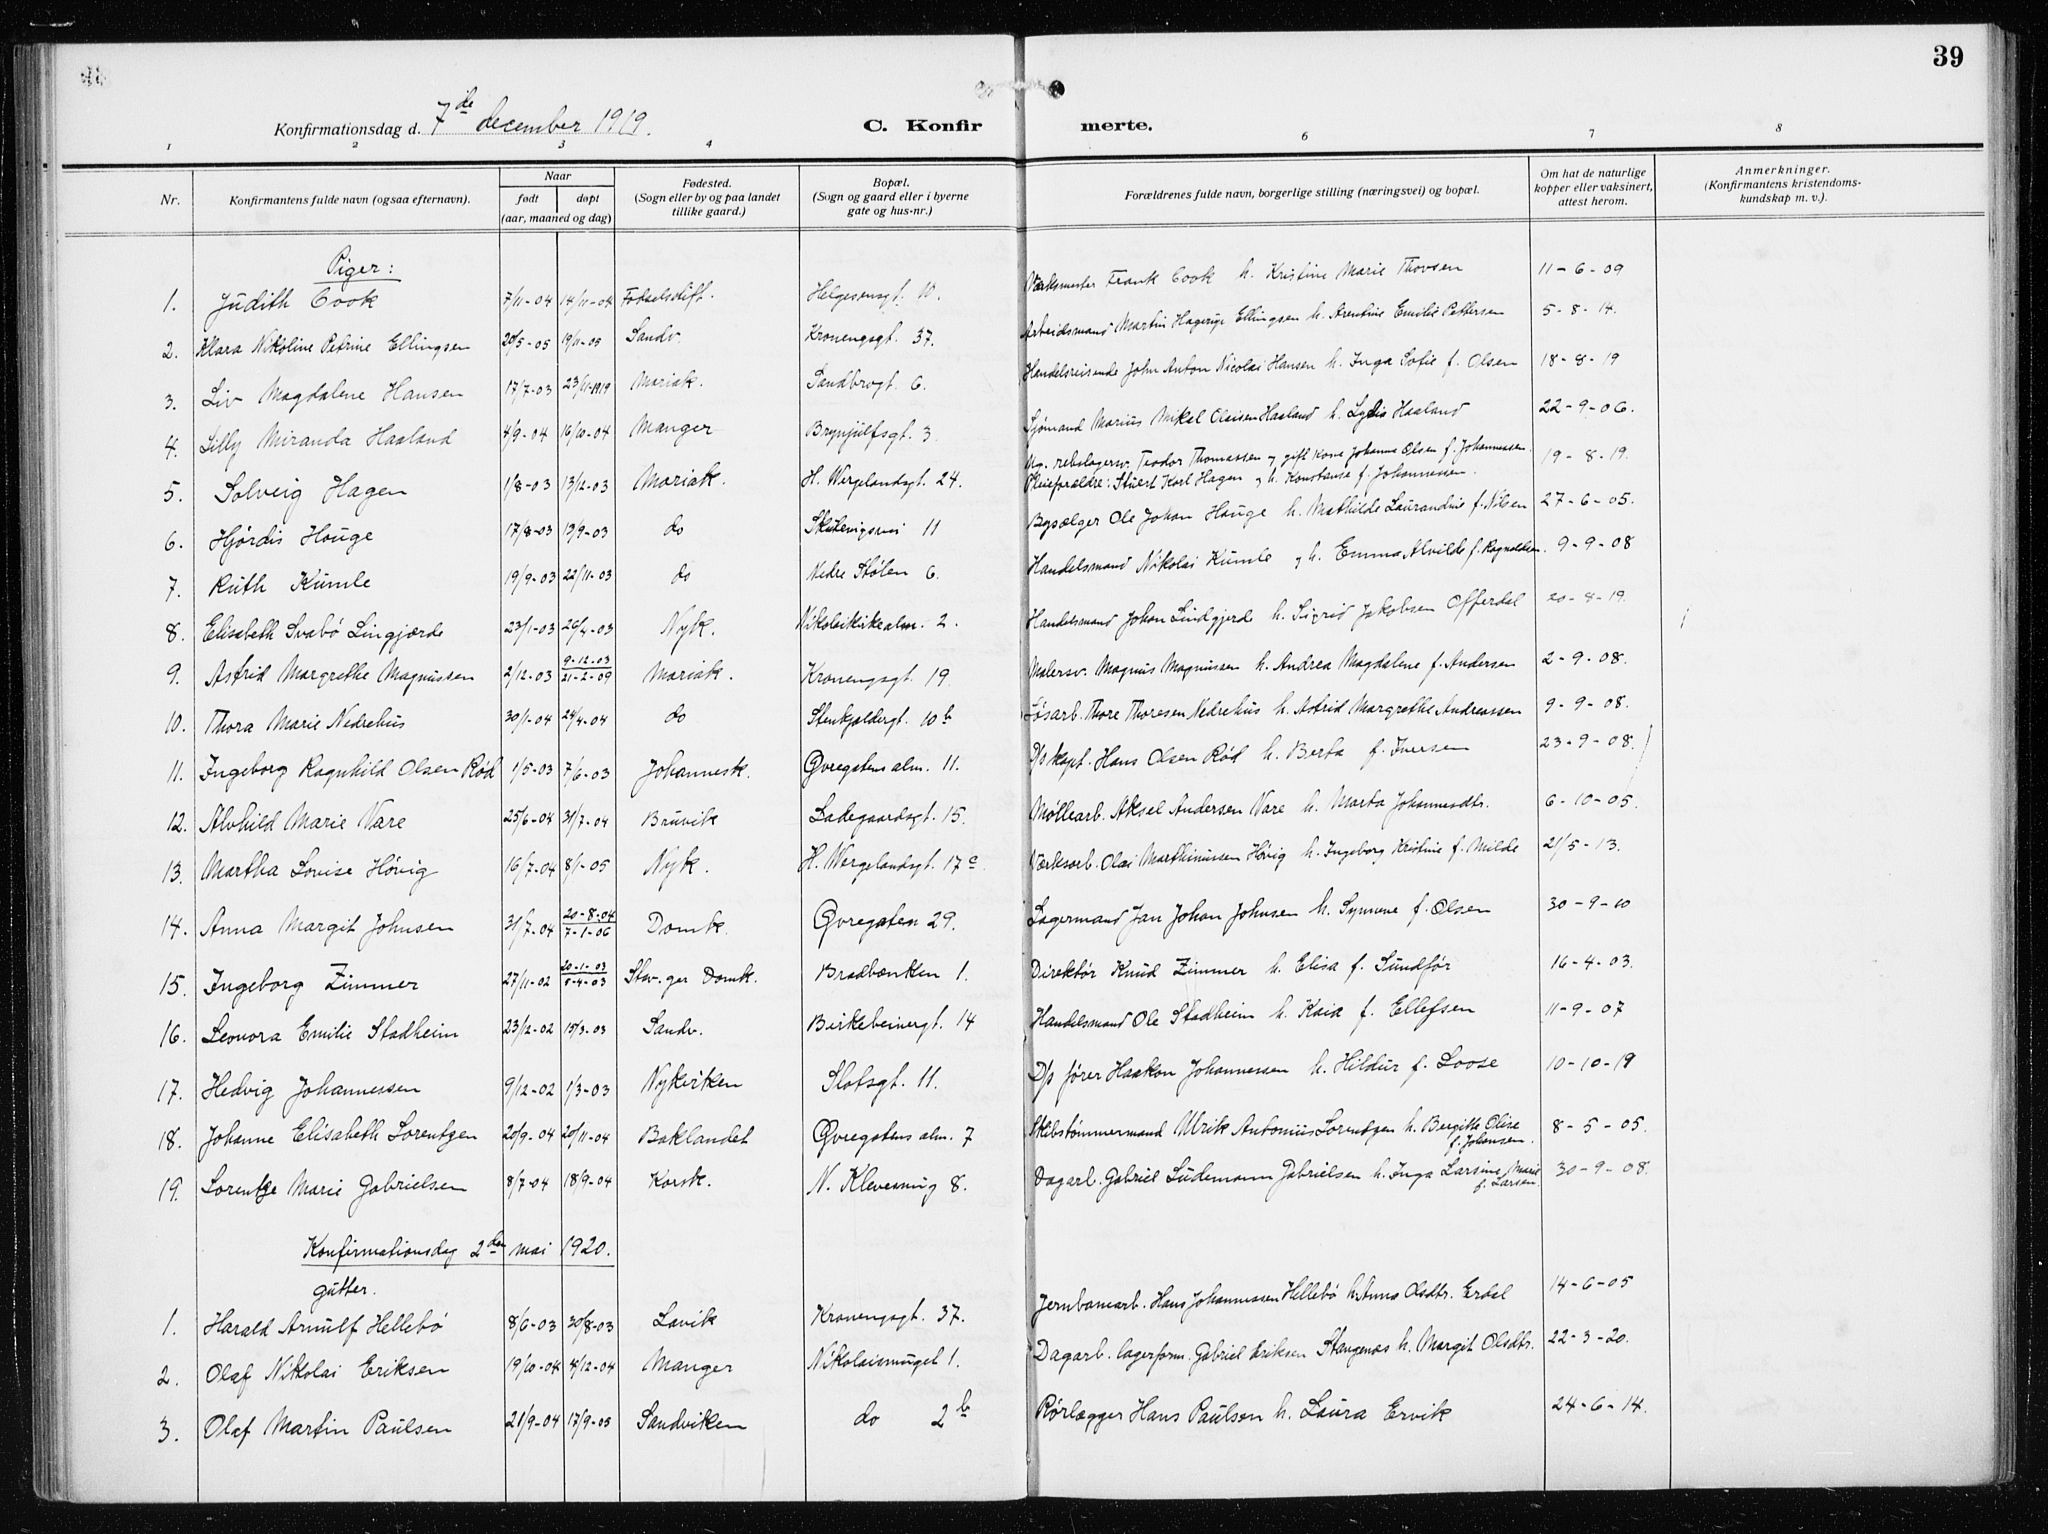 39
Konfirmationsdag d. 7de december 1919.
C. Konfirmerte.
1 2 3 4 6 7 8
Nr. Konfirmantens fulde navn (ogsaa efternavn). Naar født døpt (aar, maaned og dag) Fødested. (Sogn eller by og paa landet tillike gaard.) Bopæl. (Sogn og gaard eller i byerne gate og hus-nr.) Forældrenes fulde navn, borgerlige stilling (næringsvei) og bopæl. Om hat de naturlige kopper eller vaksinert, attest herom. Anmerkninger. (Konfirmantens kristendoms-kundskap m. v.).
Piger:
1. Judith Cook 7/11-04 14/11-04 Fødselsstift. Helgesensgt. 10. Værksmester Frank Cook h. Kristine Marie Thovsen 11-6-09
2. Klara Nikoline Petrine Ellingsen 20/5-05 19/11-05 Sandv. Kronengsgt. 37. Arbeidsmand Martin Hagerup Ellingsen h. Arentine Emilie Pettersen 5-8-14.
3. Liv Magdalene Hansen 17/7-03 23/11-1919 Mariak. Sandbrogt. 6. Handelsreisende John Anton Nicolai Hansen h. Inga Sofie f. Olsen 18-8-19
4. Lilly Miranda Haaland 4/9-04 16/10-04 Manger Brynjulfsgt. 3. Sjømand Marius Mikal Olaisen Haaland h. Lydia Haaland 22-9-06.
5. Solveig Hagen 1/8-03 13/12-03 Mariak. H. Wergelandsgt. 24. Ug. rebslagersv. Teodor Thomassen og gift kone Johanna Olsen f. Johannessen.
Pleieforældre: Stuert Karl Hagen og h. Konstanse f. Johannessen. 19-8-19.
6. Hjørdis Houge 17/8-03 13/9-03 do Skutevigsvei 11 Bysælger Ole Johan Hauge h. Mathilde Laurandine f. Nilsen 27-6-05.
7. Ruth Kumle 19/9-03 22/11-03 do Nedre Stølen 6. Handelsmand Nikolai Kumle og h. Emma Alvilde f. Ragnaldsen. 9-9-08
8. Elisabeth Svabø Lingjærde 23/1-03 26/4-03 Nyk. Nikolaikirkealm. 2. Handelsmand Johan Lindgjerde h. Sigrid Jakobsen Offerdal 20-8-19.
9. Astrid Margrethe Magnussen 2/12-03 9-12-03 21-2-09 Mariak. Kronengsgt. 19. Malersv. Magnus Magnussen h. Andrea Magdalene f. Andersen 2-9-08.
10. Thora Marie Nedrehus 30/1-04 24/4-04 do Stenkjeldergt. 10b Løsarb. Thore Thoresen Nedrehus h. Astrid Margrethe Andreassen 9-9-08.
11. Ingeborg Ragnhild Olsen Rød 1/5-03 7/6-03 Johannesk. Øvregatens alm. 11. D/s kapt. Hans Olsen Rød h. Berta f. Iversen 23-9-08.
12. Alvhild Marie Vare 25/6-04 31/7-04 Bruvik Ladegaardsgt. 15. Møllearb. Aksel Andersen Vare h. Marta Johannesdtr. 6-10-05.
13. Martha Lovise Høvig 16/7-04 8/1-05 Nyk. H. Wergelandsgt. 17c. Værksarb. Olai Marthinussen Høvig h. Ingeborg Kristine f. Milde 21/5-13.
14. Anna Margit Johnsen 31/7-04 20-8-04 7-1-06 Domk. Øvregaten 29. Lagermand Jan Johan Johnsen h. Synnøve f. Olsen 30-9-10
15. Ingeborg Zimmer 27/11-02 20-1-03 5-4-03 Stav.ger Domk. Bradbænken 1. Direktør Knud Zimmer h. Elisa f. Sundfør 16-4-03.
16. Leonora Emilie Stadheim 23/12-02 15/3-03 Sandv. Birkebeinergt. 14 Handelsmand Ole Stadheim h. Kaia f. Ellefsen 11-9-07
17. Hedvig Johannessen 9/12-02 1/3-03 Nykirken Slotsgt. 11. D/s fører Haakon Johannessen h. Hildur f. Loose 10-10-19
18. Johanne Elisabeth Lorentzen 20/9-04 20/11-04 Baklandet Øvregatens alm. 7 Skibstømmermand Ulrik Antonius Lorentzen h. Bergitte Olise f. Johansen. 8-5-05.
19. Lorentze Marie Gabrielsen 8/7-04 18/9-04 Korsk. N. Klevesmug 8. Dagarb. Gabriel Ludemann Gabrielsen h. Inga Larsine Marie f. Larsen. 30-9-08.
Konfirmationsdag 2den mai 1920.
gutter.
1. Harald Arnulf Hellebø 8/6-03 30/8-03 Lavik Kronengsgt. 37. Jernbanearb. Hans Johannessen Hellebø h. Anna Olsdtr. Erdal 14-6-05
2. Olaf Nikolai Eriksen 19/10-04 4/12-04 Manger Nikolaismuget 1. Dagarb. lagerform. Gabriel Eriksen Stangenæs h. Margit Olsdtr. 22-3-20.
3. Olaf Martin Paulsen 21/9-04 17/9-05 Sandviken do 2b Rørlægger Hans Paulsen h. Laura Ervik 24-6-14.